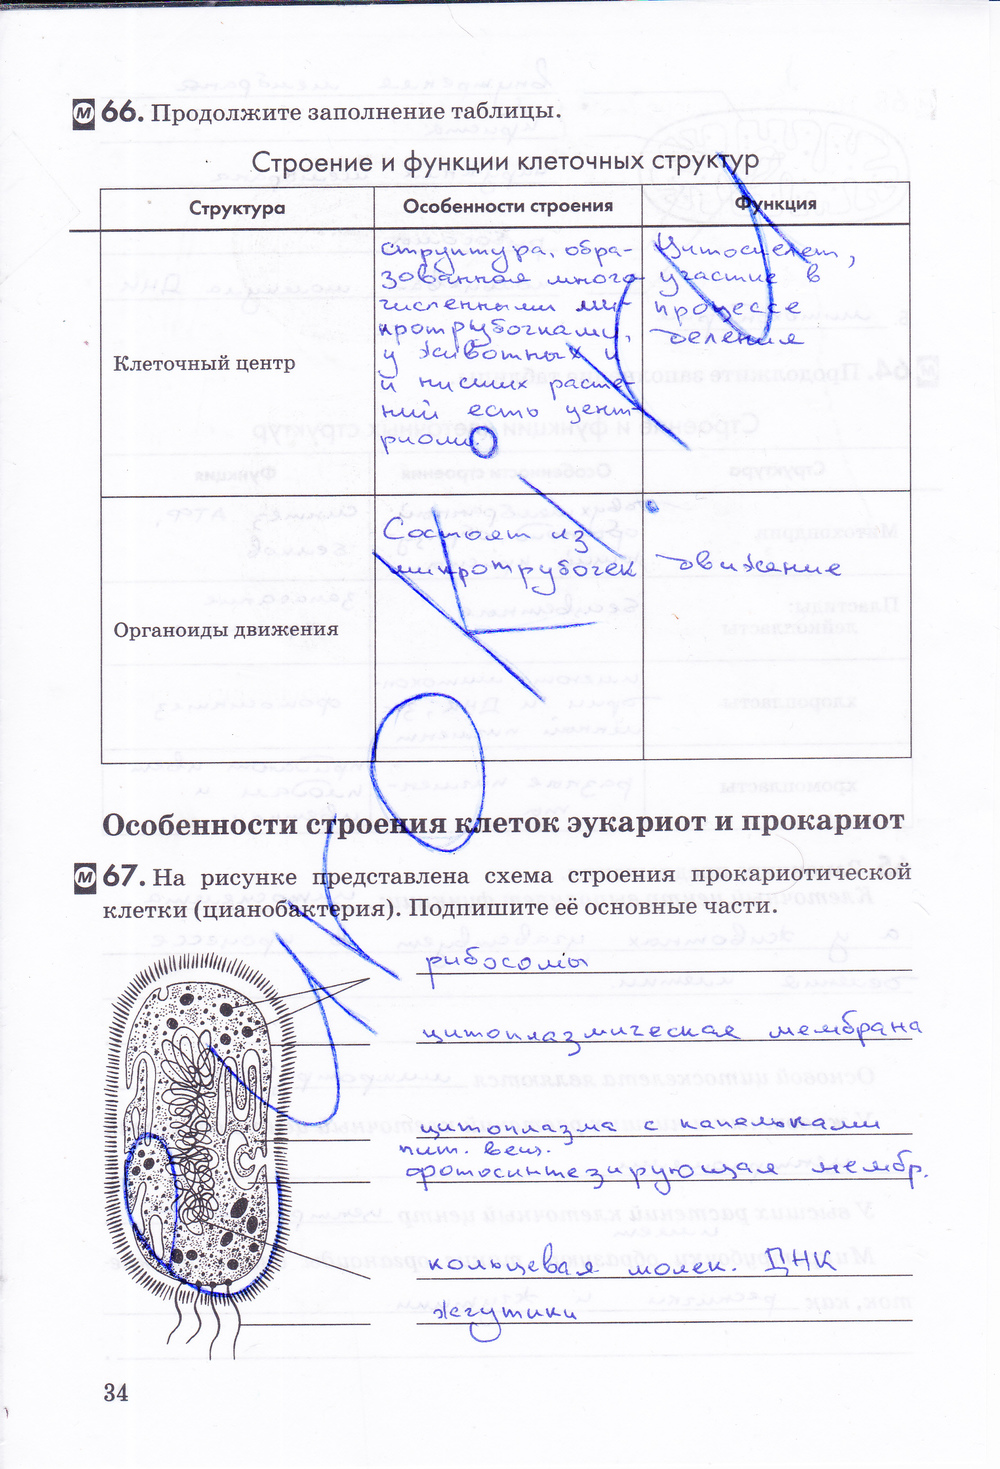 М 66. Продолжите заполнение таблицы.
Строение и функции клеточных структур
Структура Особенности строения Функция
Клеточный центр
структура, обра-
зованная много-
численными ми-
кротрубочками,
у животных и
и низших расте-
ний есть цент-
риоли.
Цитоскелет,
участие в
процессе
деления
Органоиды движения
Состоят из
микротрубочек
движение
Особенности строения клеток эукариот и прокариот
М 67. На рисунке представлена схема строения прокариотической
клетки (цианобактерия). Подпишите её основные части.
рибосомы
цитоплазмическая мембрана
цитоплазма с капельками
пит. вещ.
фотосинтезирующая мембр.
кольцевая молек. ДНК
жгутики
34